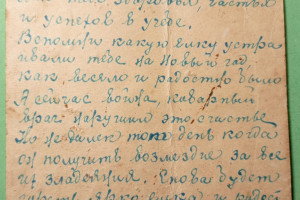 здоровья, счастья
и успехов в учебе.
Вспомни какую елку устра
ивали тебе на Новый год,
как весело и радостно было
А сейчас война, коварный
враг нарушил это счастье
Но не далек тот день когда
он получит возмездие за все
злодеяния. Снова будет
ярко елка и радост